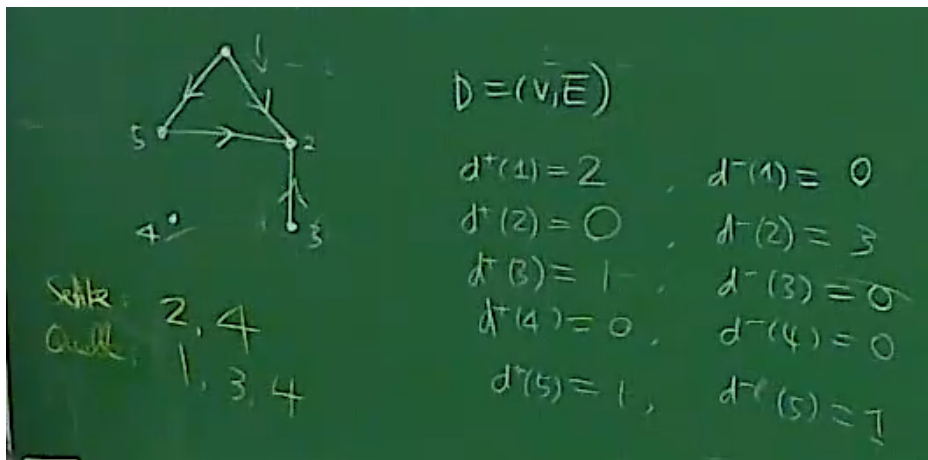 1
5
2
4
3
Senke: 2, 4
Quelle: 1, 3, 4
D = (V, E)
d⁺(1) = 2 , d⁻(1) = 0
d⁺(2) = 0 , d⁻(2) = 3
d⁺(3) = 1 , d⁻(3) = 0
d⁺(4) = 0 , d⁻(4) = 0
d⁺(5) = 1 , d⁻(5) = 1